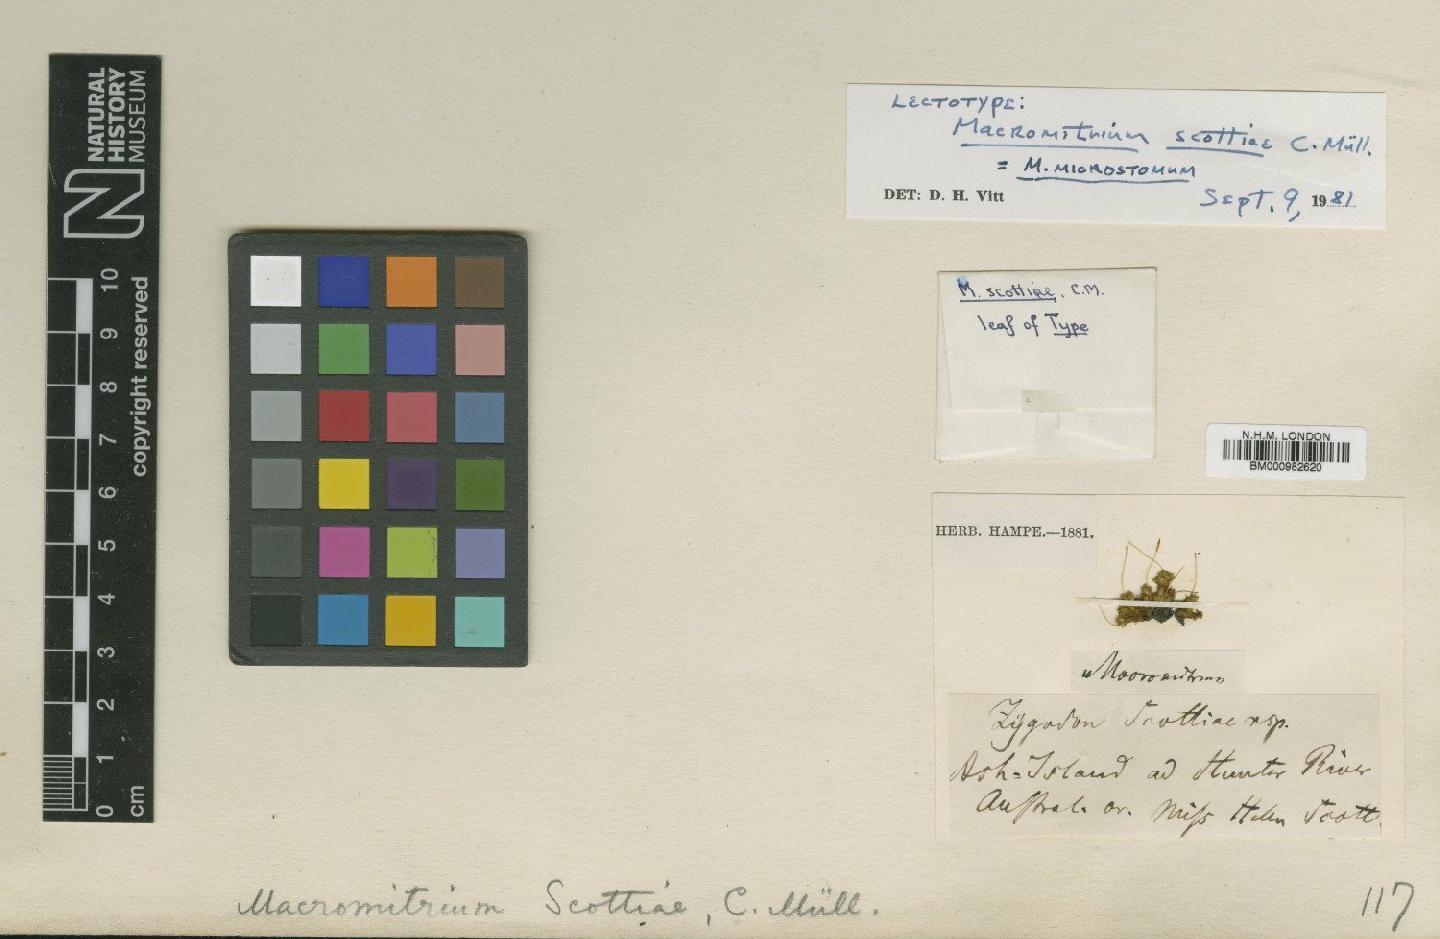 NATURAL
HISTORY
MUSEUM
copyright reserved
10
9
8
7
6
5
4
3
2
1
0
cm
LECTOTYPE:
Macromitrium scottiae C. Müll.
= M. MICROSTOMUM
DET: D. H. Vitt Sept. 9, 1981
M. scottiae, C.M.
leaf of Type
N.H.M. LONDON
BM000982620
HERB. HAMPE.—1881.
Macromitrium
Zygodon Scottiae nsp.
Ash=Island ad Hunter River
Austral. or. Miss Helen Scott
Macromitrium Scottiae, C. Müll.
117